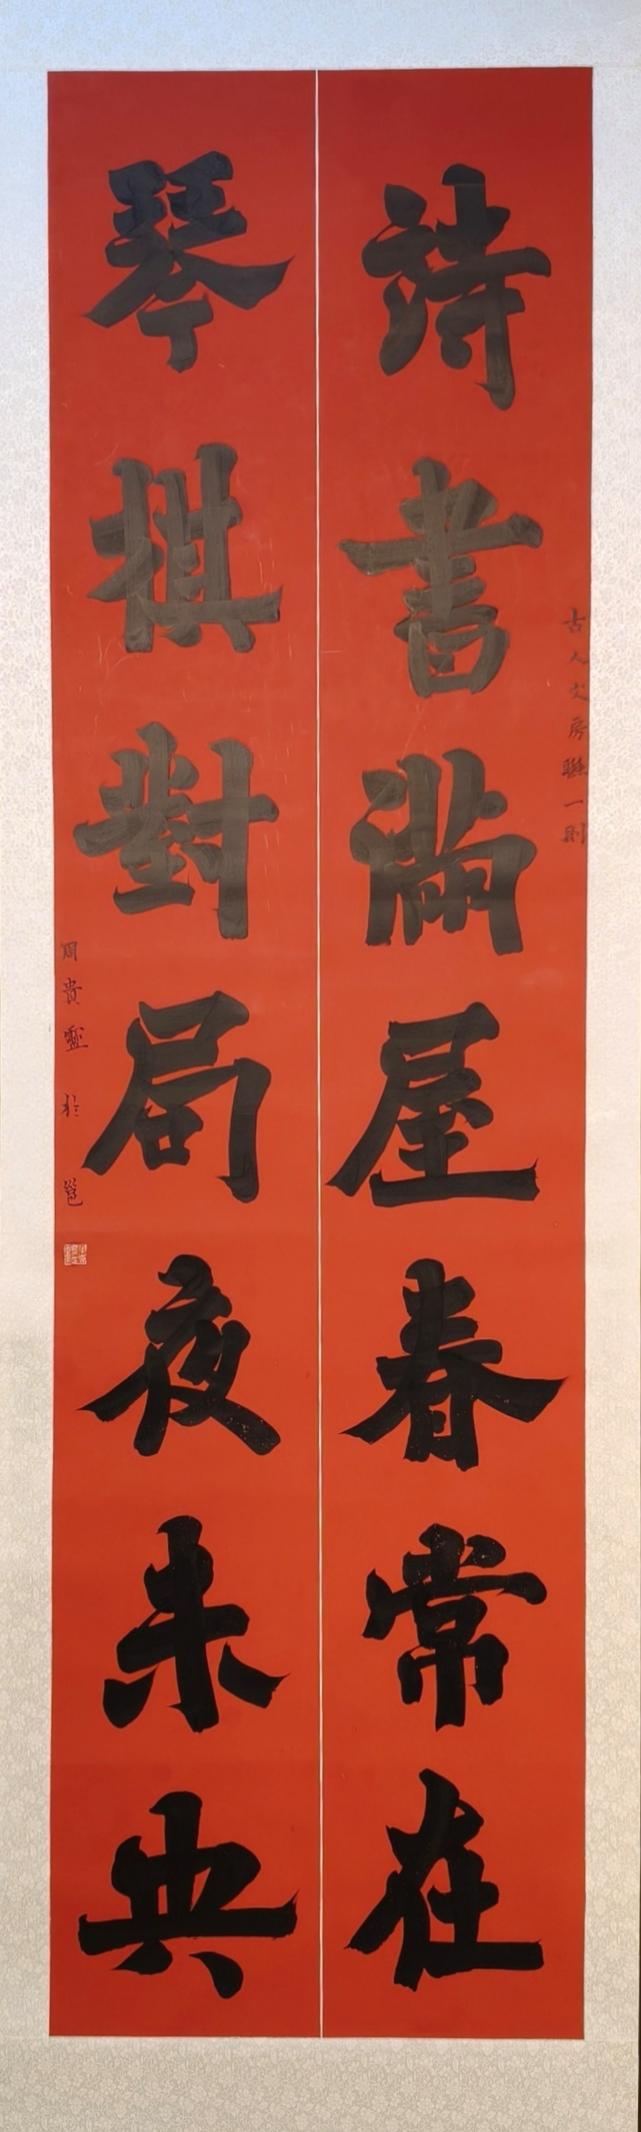 詩書滿屋春常在
古人文房聯一則
琴棋對局夜未央
周貴靈 於邕